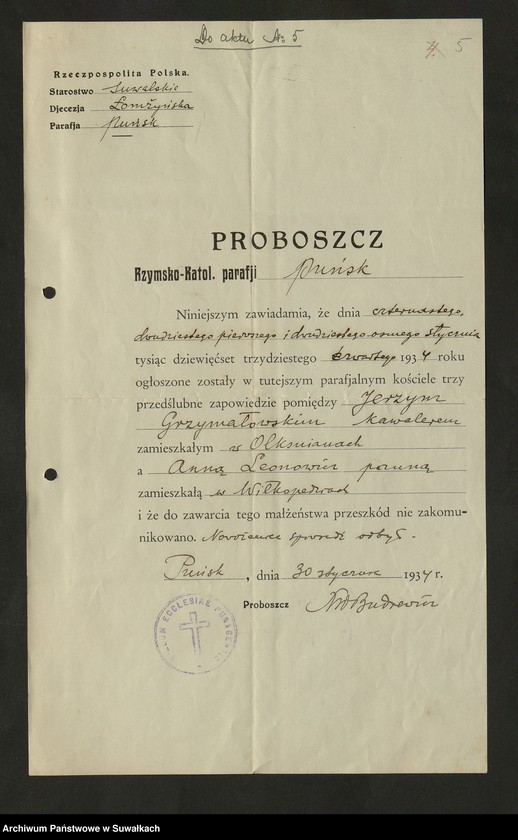 Do aktu № 5
4. 5
Rzeczpospolita Polska.
Starostwo Suwalskie
Djecezja Łomżyńska
Parafja Puńsk
PROBOSZCZ
Rzymsko-Katol. parafji Puńsk
Niniejszym zawiadamia, że dnia czternastego,
dwudziestego pierwszego i dwudziestego ósmego stycznia
tysiąc dziewięćset trzydziestego czwartego 1934 roku
ogłoszone zostały w tutejszym parafjalnym kościele trzy
przedślubne zapowiedzie pomiędzy Jerzym
Grzymałowskim kawalerem
zamieszkałym w Olkśnianach
a Anną Leonowicz panną
zamieszkałą w
i że do zawarcia tego małżeństwa przeszkód nie zakomu-
nikowano. Nowożeniec spowiedź odbył.
Puńsk, dnia 30 stycznia 1934 r.
Proboszcz
ECCLESIAE
Archiwum Państwowe w Suwałkach